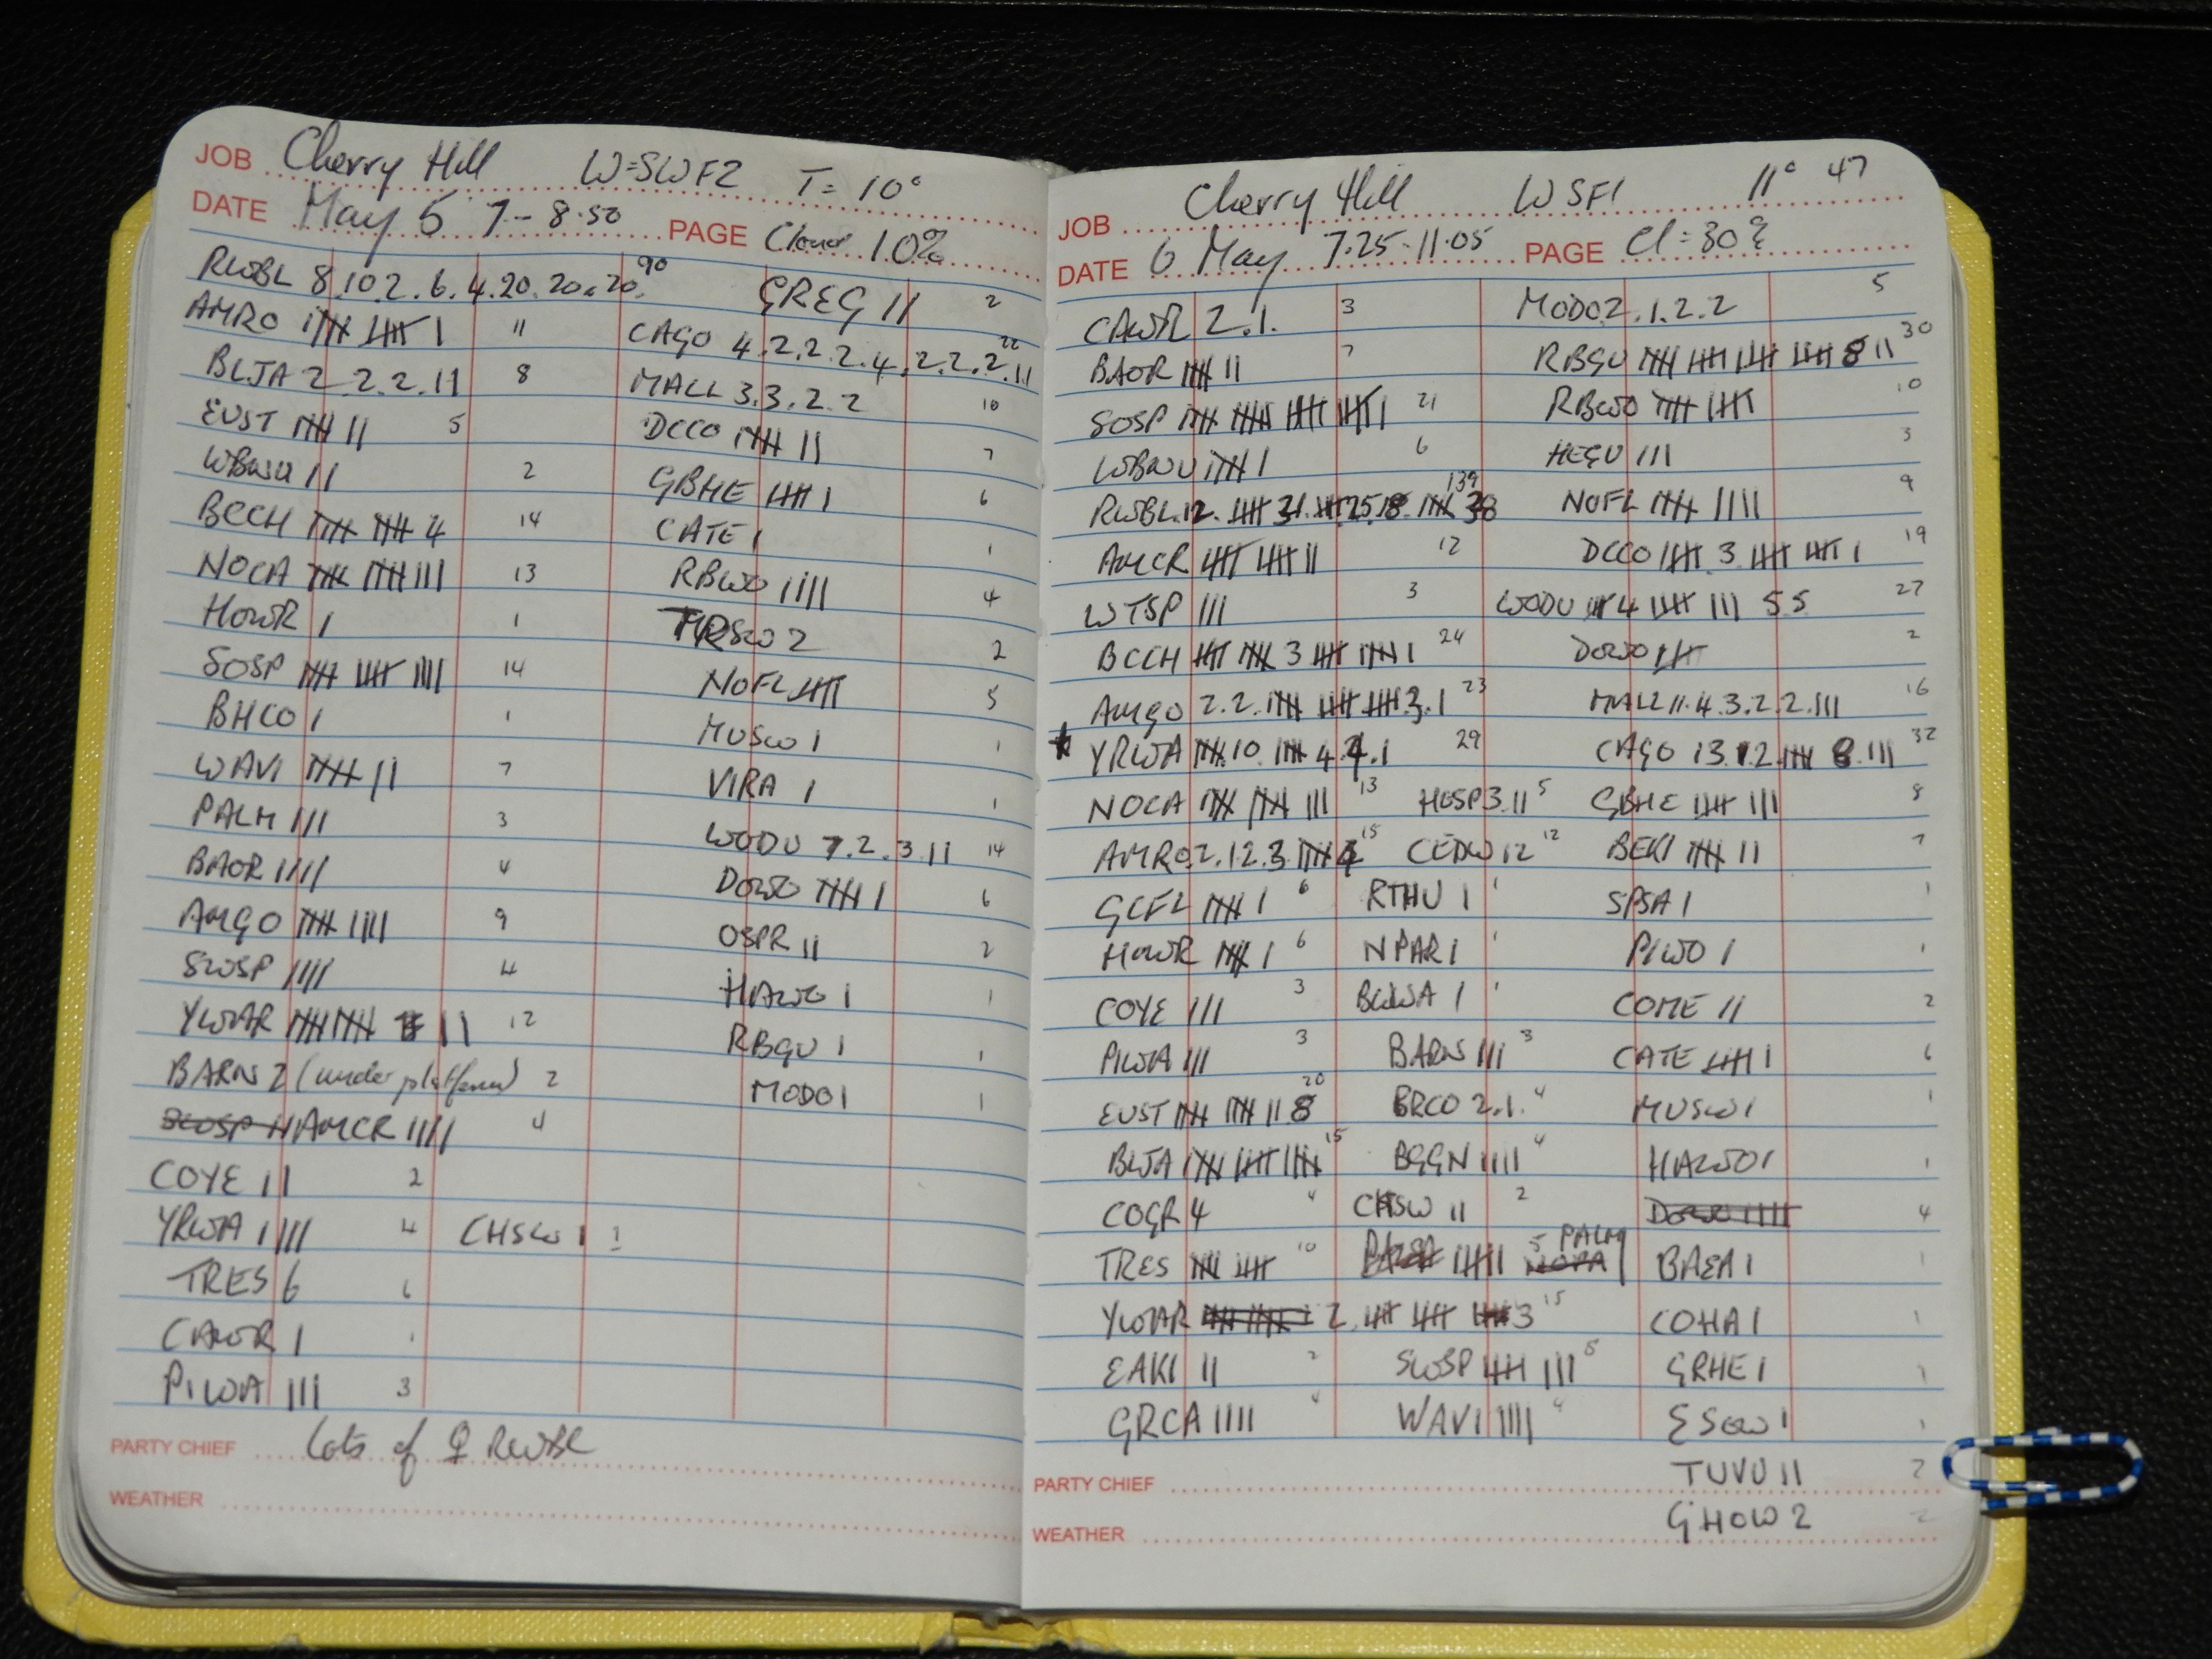 JOB Cherry Hill W=SWF2 T= 10°
DATE May 5 7-8.50 PAGE Cloud 10%
RWBL 8.10.2.6.4.20.20.20. 90
AMRO 𝍸 𝍸 | 11
BLJA 2.2.2.11 8
EUST 𝍸 || 5
WBNU || 2
BCCH 𝍸 𝍸 4 14
NOCA 𝍸 𝍸 ||| 13
HOWR 1 1
SOSP 𝍸 𝍸 |||| 14
BHCO 1 1
WAVI 𝍸 || 7
PALM ||| 3
BAOR |||| 4
AMGO 𝍸 |||| 9
SWSP |||| 4
YWAR 𝍸 𝍸 || 12
BARN 2 (under platform) 2
AMCR |||| 4
COYE || 2
YRWA |||| 4 CHSW 1 1
TRES 6 6
CAWR 1 1
PIWA ||| 3
GREG || 2
CAGO 4.2.2.2.4.2.2.2.11 22
MALL 3.3.2.2 10
DCCO 𝍸 || 7
GBHE 𝍸 | 6
CATE 1 1
RBWO |||| 4
TRSW 2 2
NOFL 𝍸 5
MUSW 1 1
VIRA 1 1
WODU 7.2.3 || 14
DOWO 𝍸 | 6
OSPR || 2
HAWO 1 1
RBGU 1 1
MODO 1 1
PARTY CHIEF Lots of ♀ RWBL
WEATHER
JOB Cherry Hill W SF1 11° 47
DATE 6 May 7.25-11.05 PAGE Cl=30%
CAWR 2.1. 3
BAOR 𝍸 || 7
SOSP 𝍸 𝍸 𝍸 𝍸 | 21
WBNU 𝍸 | 6
RWBL 12. 𝍸 31. 𝍸 25.18. 𝍸 38 139
AMCR 𝍸 𝍸 || 12
WTSP ||| 3
BCCH 𝍸 𝍸 3 𝍸 𝍸 1 24
AMGO 2.2. 𝍸 𝍸 𝍸 3.1 23
★ YRWA 𝍸.10. 𝍸 4.4.1 29
NOCA 𝍸 𝍸 ||| 13 HOSP 3.11 5
AMRO 2.12.3 𝍸 15 CEDW 12 12
GCFL 𝍸 1 6 RTHU 1 1
HOWR 𝍸 1 6 NPAR 1 1
COYE ||| 3 BWWA 1 1
PIWA ||| 3 BARN ||| 3
EUST 𝍸 𝍸 11 8 20 BRCO 2.1. 4
BLJA 𝍸 𝍸 𝍸 15 BGGN |||| 4
COGR 4 4 CHSW || 2
TRES 𝍸 𝍸 10 5 PALM
YWAR 2. 𝍸 𝍸 3 15
EAKI || 2 SWSP 𝍸 ||| 8
GRCA |||| 4 WAVI |||| 4
MODO 2.1.2.2 5
RBGU 𝍸 𝍸 𝍸 𝍸 8 11 30
RBWO 𝍸 𝍸 10
HEGU ||| 3
NOFL 𝍸 |||| 9
DCCO 𝍸 3 𝍸 𝍸 1 19
WODU 4 𝍸 ||| 5 5 27
DOWO 2
MALL 11.4.3.2.2.||| 16
CAGO 13.12. 𝍸 8.||| 32
GBHE 𝍸 ||| 8
BEKI 𝍸 || 7
SPSA 1 1
PIWO 1 1
COME || 2
CATE 𝍸 1 6
MUSW 1 1
HAWO 1 1
DOWO 4
BAEA 1 1
COHA 1 1
GRHE 1 1
ESOW 1 1
TUVU || 2
GHOW 2 2
PARTY CHIEF
WEATHER